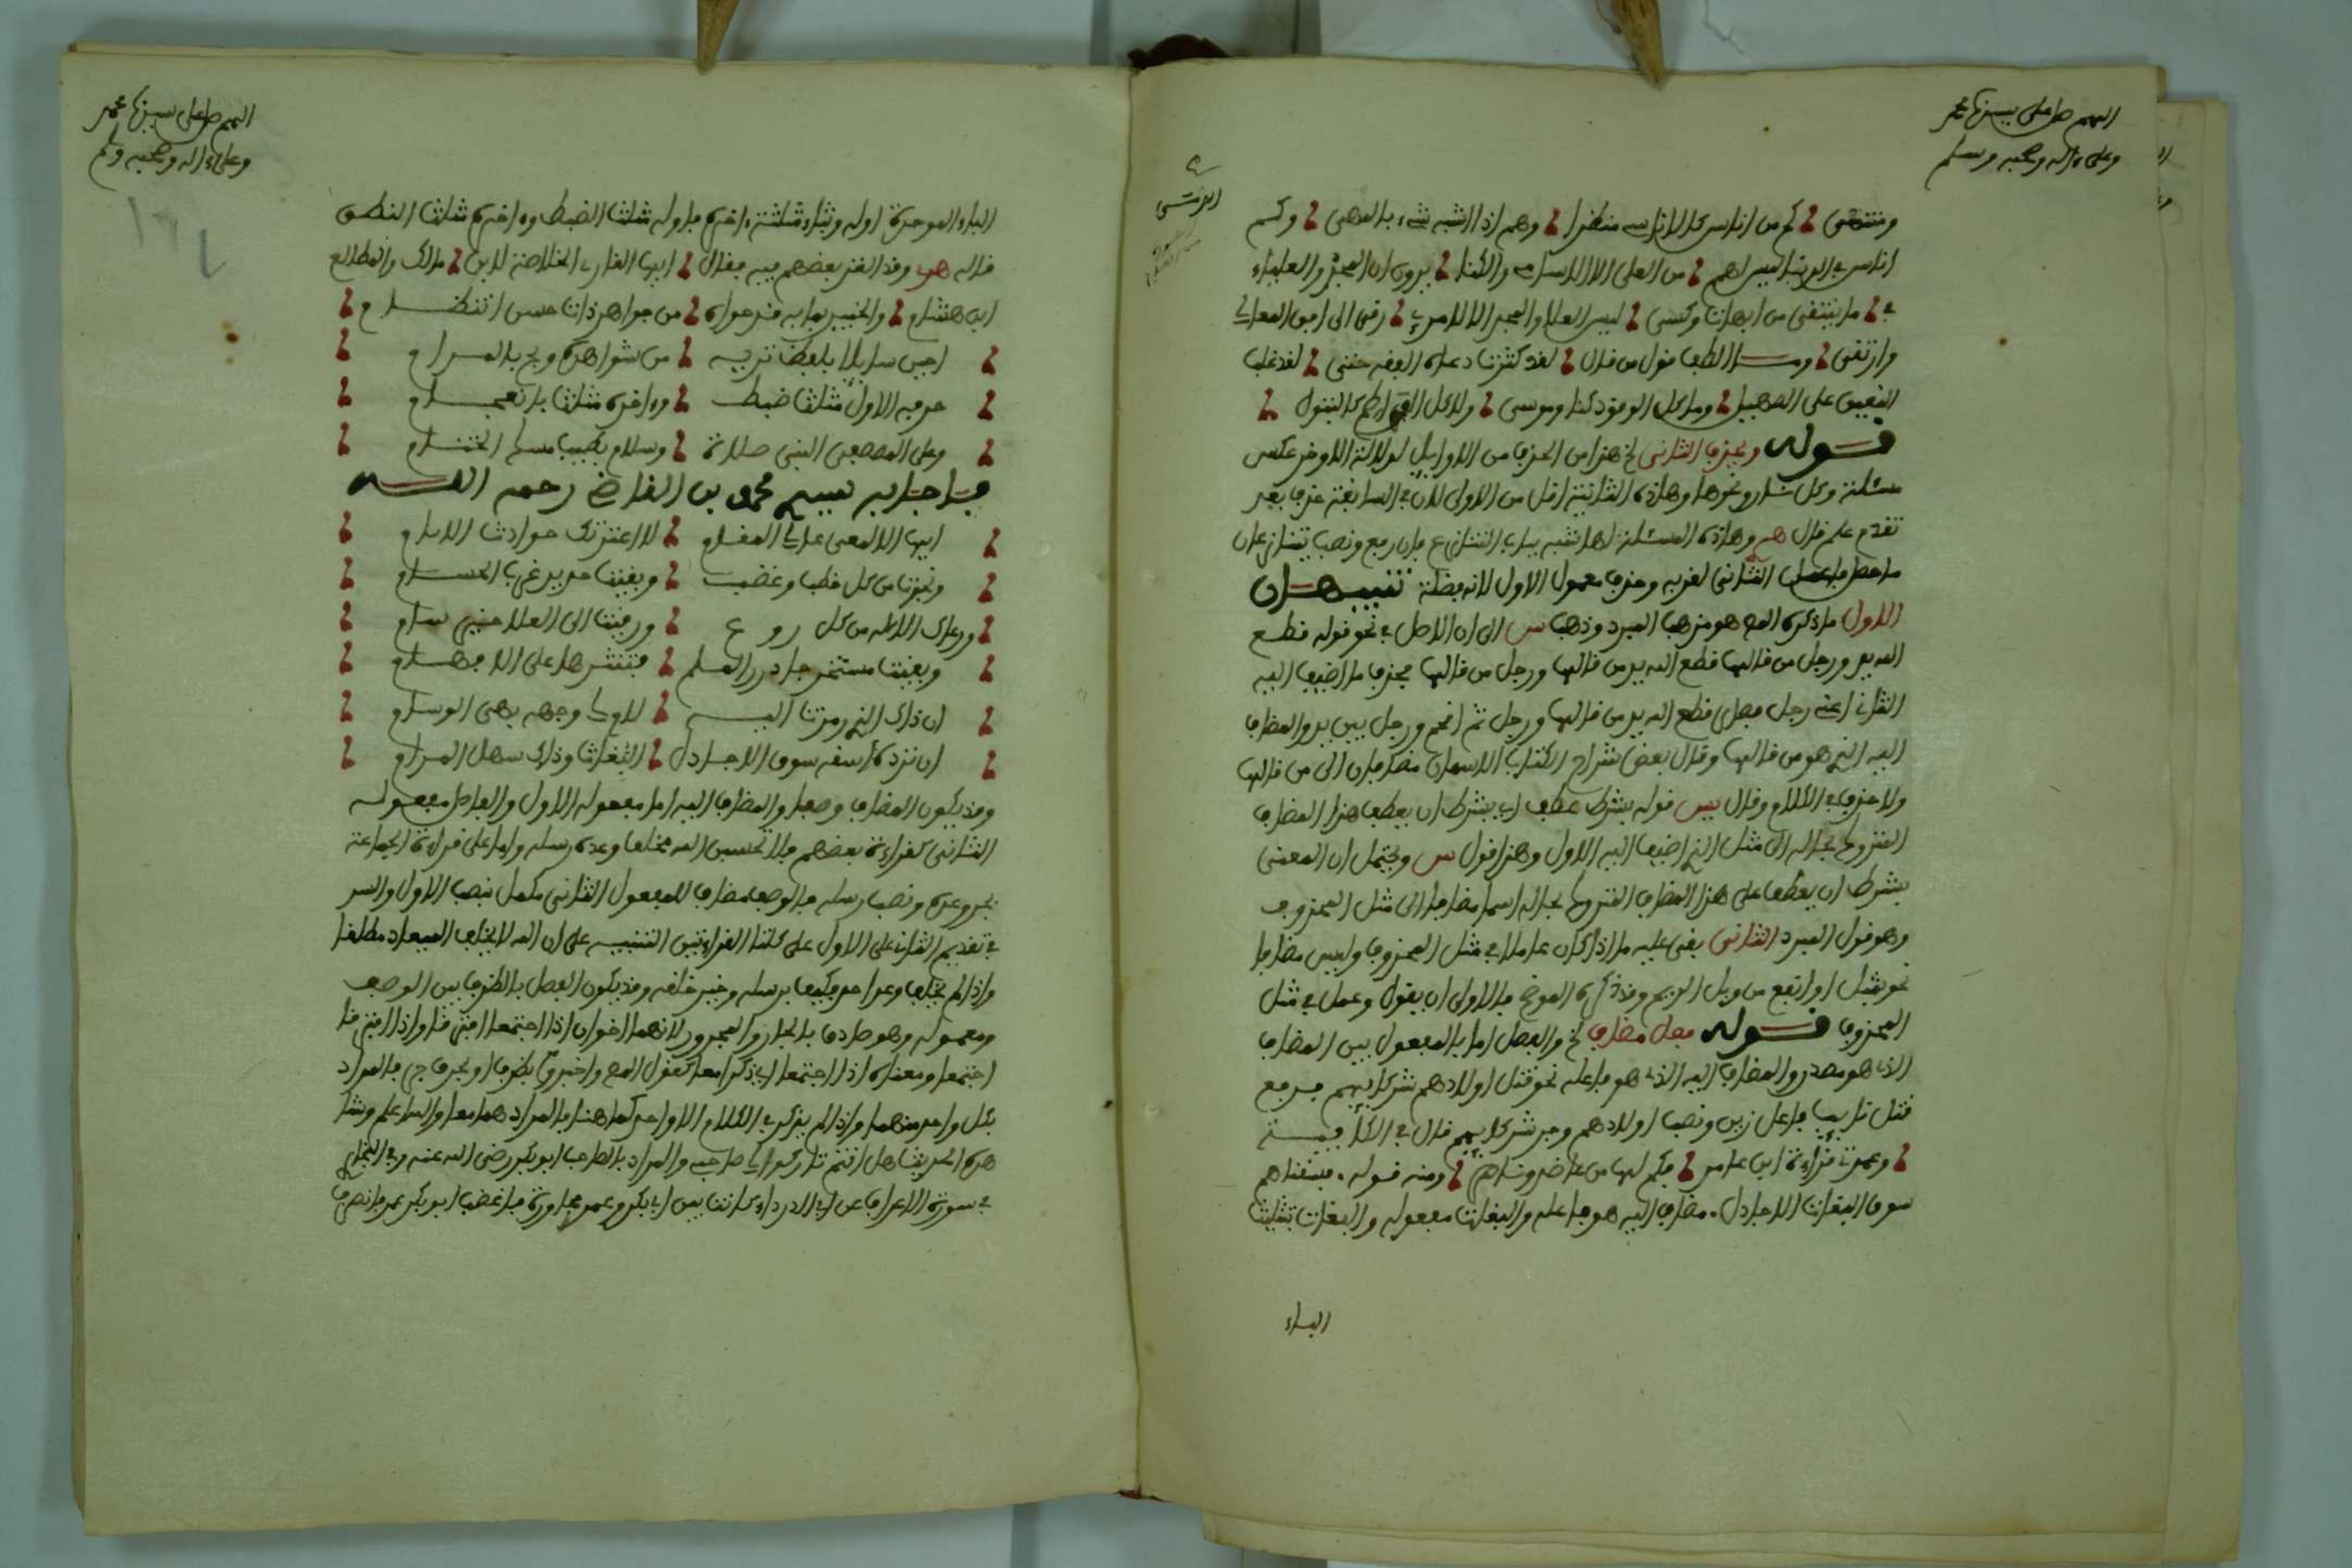 اللهم صل على سيدنا محمد
وعلى ءاله وصحبه وسلم
ومنتهى كم من اناس كالاناسى منظرا وهم اذا اشبه شىء بالمهى وكم
اناس في الدنيا ليس لهم من العلى الا الاسامى والكنا يرون ان المجد والعلياء
في ما ينتقى من ابهات وكسى ليس العلا والمجد الا لامرئ رقى الى اوج المعالي
وارتقى قول من قال لقد كثرت دعاة الفقه حتى لقد غلب
النعيق على الصهيل وما كل الوقود كنار موسى ولا كل الفواطم كالبتول
قوله ويحذف الثاني الخ هذا من الحذف من الاوايل لدلالة الاواخر عكس
مسئلة وكل شاة ونحوها وهاذه الثانية اقل من الاولى لان في السابقة حذف بعد
تقدم علم قال وهاذه المسئلة لها شبه بباب التنازع فان رفع ونصب تنازعان
ما حصل فاعمل الثاني لقربه وحذف معمول الاول لانه فضلة تنبيهان
الاول ما ذكره المص هو مذهب المبرد وذهب س الى ان الاصل في نحو قوله قطع
الله يد ورجل من قالها قطع الله يد من قالها ورجل من قالها فحذف ما اضيف اليه
الثاني اعني رجل فصار قطع الله يد من قالها ورجل ثم اقحم ورجل بين يد والمضاف
اليه الذي هو من قالها وقال بعض شراح الكتاب الاسمان مضافان الى من قالها
ولا حذف في الكلام وقال يس قوله بشرط عطف اي بشرط ان يعطف هذا المضاف
المتروك بحاله الى مثل الذي اضيف اليه الاول وهذا قول س ويحتمل ان المعنى
بشرط ان يعطف على هذا المضاف المتروك بحاله اسما مضافا الى مثل المحذوف
وهو قول المبرد الثاني بقى عليه ما اذا كان عاملا في مثل المحذوف وليس مضافا
نحو بمثل او انفع من وبل الديم وقد ذكره الموضح فالاولى ان يقول وعمل في مثل
المحذوف قوله فصل مضاف الخ والفصل اما بالمفعول بين المضاف
الذي هو مصدر والمضاف اليه الذي هو فاعله نحو قتل اولادهم شركايهم برفع
قتل نايب فاعل زين ونصب اولادهم وجر شركايهم قال في الكافية
وعمدتي قراءة ابن عامر فكم لها من عاضد وناصر ومنه قوله فسقناهم
سوق البغاث الاجادل مضاف اليه هو فاعله والبغاث مفعوله والبغاث بتثليث
الباء
اللهم صل على سيدنا محمد
وعلى ءاله وصحبه وسلم
الباء الموحدة اوله وبثاء مثلثة ءاخره فاوله مثلث الضبط وءاخره مثلث النطق
قاله وقد الغز بعضهم فيه فقال ايها القارئ الخلاصة لابن مالك والمطالع
ابن هشام والخبير بما به قد حواه من جواهر ذات حسن انتظام
اجب سايلا بلفظ تريه من شواهده وبح بالمرام
حرفه الاول مثلث ضبط وءاخره مثلث بانعجام
وعلى المصطفى النبي صلاة وسلام يطيب مسك الختام
فاجابه محمد بن القاضي رحمه الله
ايها الالمعى عالي المقام لا اعترتك حوادث الايام
ونجوت من كل خطب وغضب وبقيت حديد غرب الحسام
ورعاك الاله من كل روع ورقيت الى العلا خير سام
وبقيت مستخرجا درر العلم فتنثرها على الافهام
ان ذاك الذي رمزت اليه لاولى وجهه بهى الوسام
ان ترده اسفه سوق الاجادل البغاث وذاك سهل المرام
وقد يكون المضاف وصفا والمضاف اليه اما مفعوله الاول والفاصل مفعوله
الثاني كقراءة بعضهم فلا تحسبن الله مخلف وعده رسله واما على قراءة الجماعة
بجر وعده ونصب رسله فالوصف مضاف للمفعول الثاني مكمل بنصب الاول والسر
في تقديم الثاني على الاول على كلتا القراءتين التنبيه على ان الله لا يخلف الميعاد مطلقا
واذا لم يخلف وعد احد فكيف برسله وخير خلقه وقد يكون الفصل بالظرف بين الوصف
ومعموله وهو صادق بالجار والمجرور لانهما اخوان اذا اجتمعا افترقا واذا افترقا
اجتمعا ومعناه اذا اجتمعا اي ذكرا معا كقول المص واخبروا بظرف او بحرف جر فالمراد
بكل واحد منهما واذا لم يذكر في الكلام الا واحد كما هنا فالمراد هما معا والله اعلم وشا
هده الحديث هل انتم تاركوا لي صاحبي والمراد بالصاحب ابو بكر رضي الله عنه وفي البخاري
في سورة الاعراف عن ابي الدرداء كانت بين ابي بكر وعمر محاورة فاغضب ابو بكر عمر فانصرف